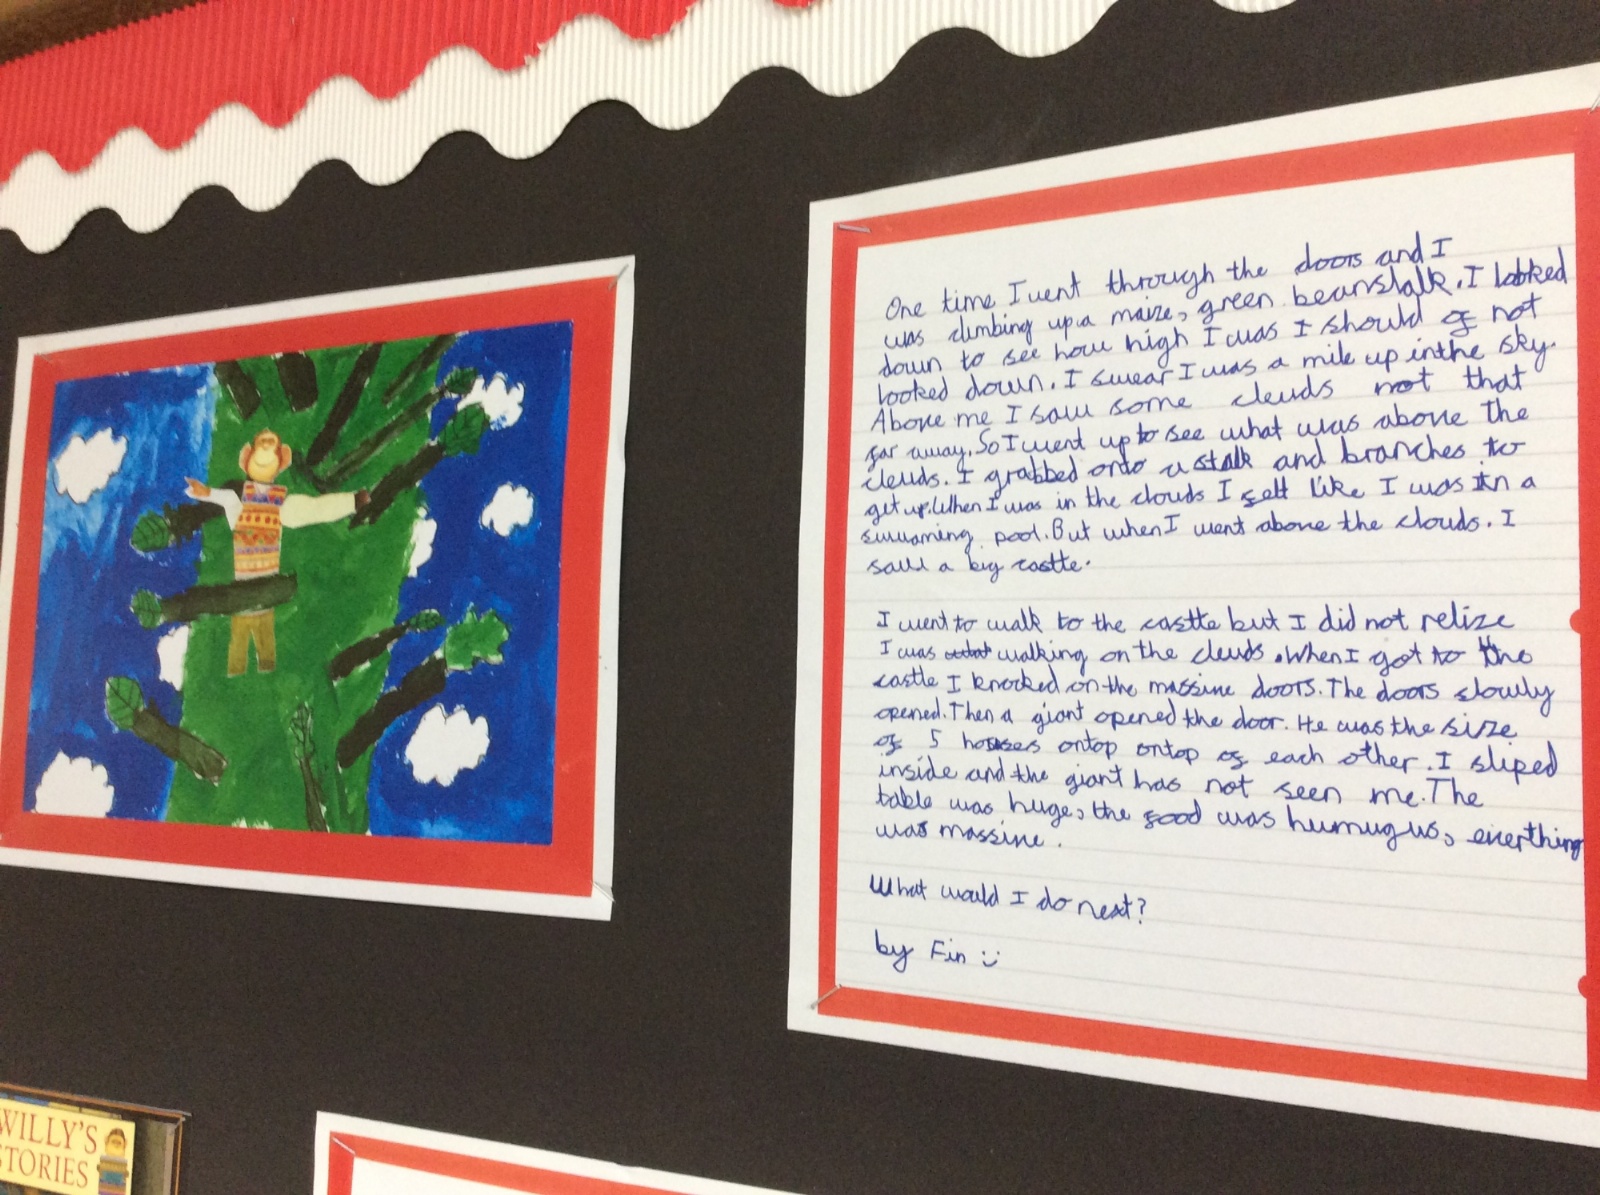 One time I went through the doors and I
was climbing up a maize, green beanstalk. I looked
down to see how high I was I should of not
looked down. I swear I was a mile up in the sky.
Above me I saw some clouds not that
far away. So I went up to see what was above the
clouds. I grabbed onto a stalk and branches to
get up. When I was in the clouds I felt like I was in a
swimming pool. But when I went above the clouds. I
saw a big castle.
I went to walk to the castle but I did not relize
I was walking on the clouds. When I got to the
castle I knocked on the massive doors. The doors slowly
opened. Then a giant opened the door. He was the size
of 5 houses ontop ontop of each other. I sliped
inside and the giant has not seen me. The
table was huge, the food was humugus, everthing
was massive.
What would I do next?
by Fin :)
WILLY'S
STORIES